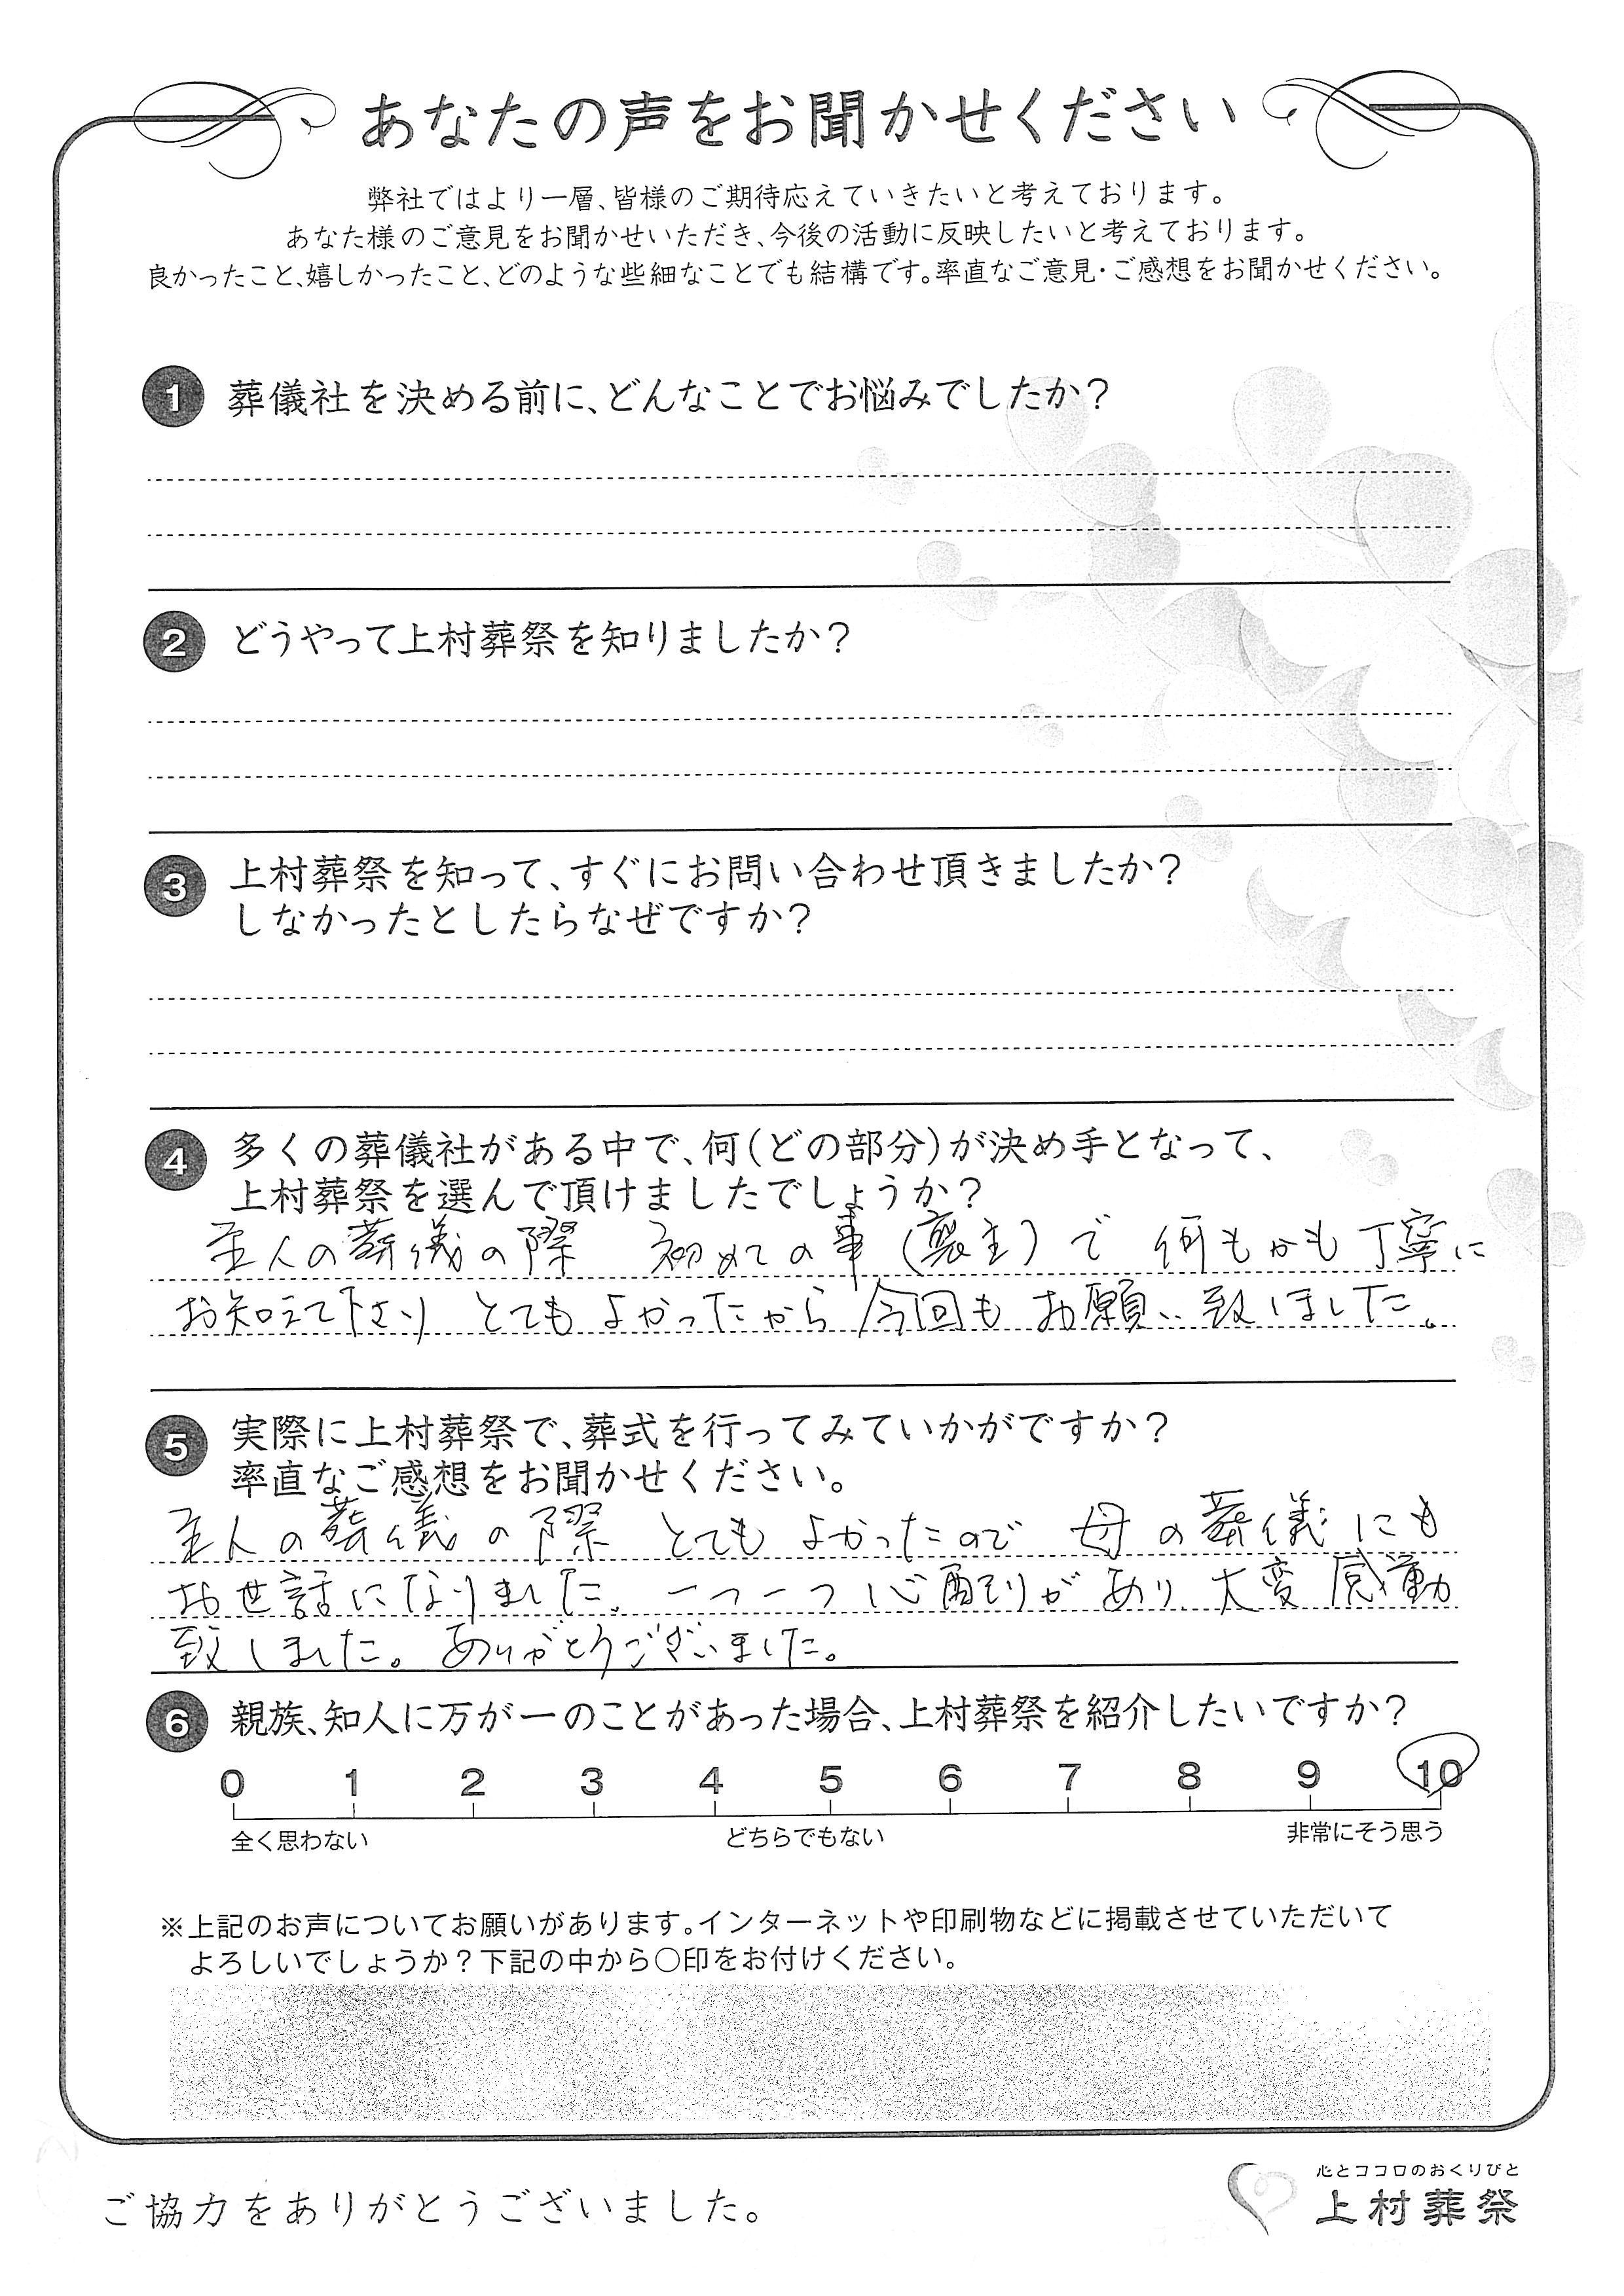 あなたの声をお聞かせください
弊社ではより一層、皆様のご期待応えていきたいと考えております。
あなた様のご意見をお聞かせいただき、今後の活動に反映したいと考えております。
良かったこと、嬉しかったこと、どのような些細なことでも結構です。率直なご意見・ご感想をお聞かせください。
1 葬儀社を決める前に、どんなことでお悩みでしたか?
2 どうやって上村葬祭を知りましたか?
3 上村葬祭を知って、すぐにお問い合わせ頂きましたか?
しなかったとしたらなぜですか?
4 多くの葬儀社がある中で、何(どの部分)が決め手となって、
上村葬祭を選んで頂けましたでしょうか?
主人の葬儀の際 初めての事(喪主)で 何もかも丁寧に
お知えて下さり とても よかったから 今回も お願い致しました。
5 実際に上村葬祭で、葬式を行ってみていかがですか?
率直なご感想をお聞かせください。
主人の葬儀の際 とても よかったので 母の葬儀にも
お世話になりました。一つ一つ心配りがあり、大変感動
致しました。ありがとうございました。
6 親族、知人に万が一のことがあった場合、上村葬祭を紹介したいですか?
0 1 2 3 4 5 6 7 8 9 10
全く思わない どちらでもない 非常にそう思う
※上記のお声についてお願いがあります。インターネットや印刷物などに掲載させていただいて
よろしいでしょうか?下記の中から○印をお付けください。
心とココロのおくりびと
ご協力をありがとうございました。 上村葬祭